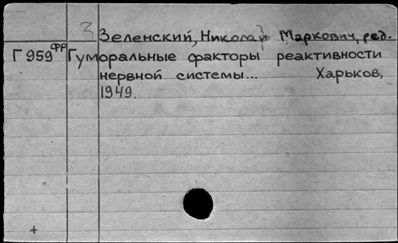 З Зеленский, Николай Маркович, ред.
Г959фр Гуморальные факторы реактивности
нервной системы... Харьков,
1949.
+